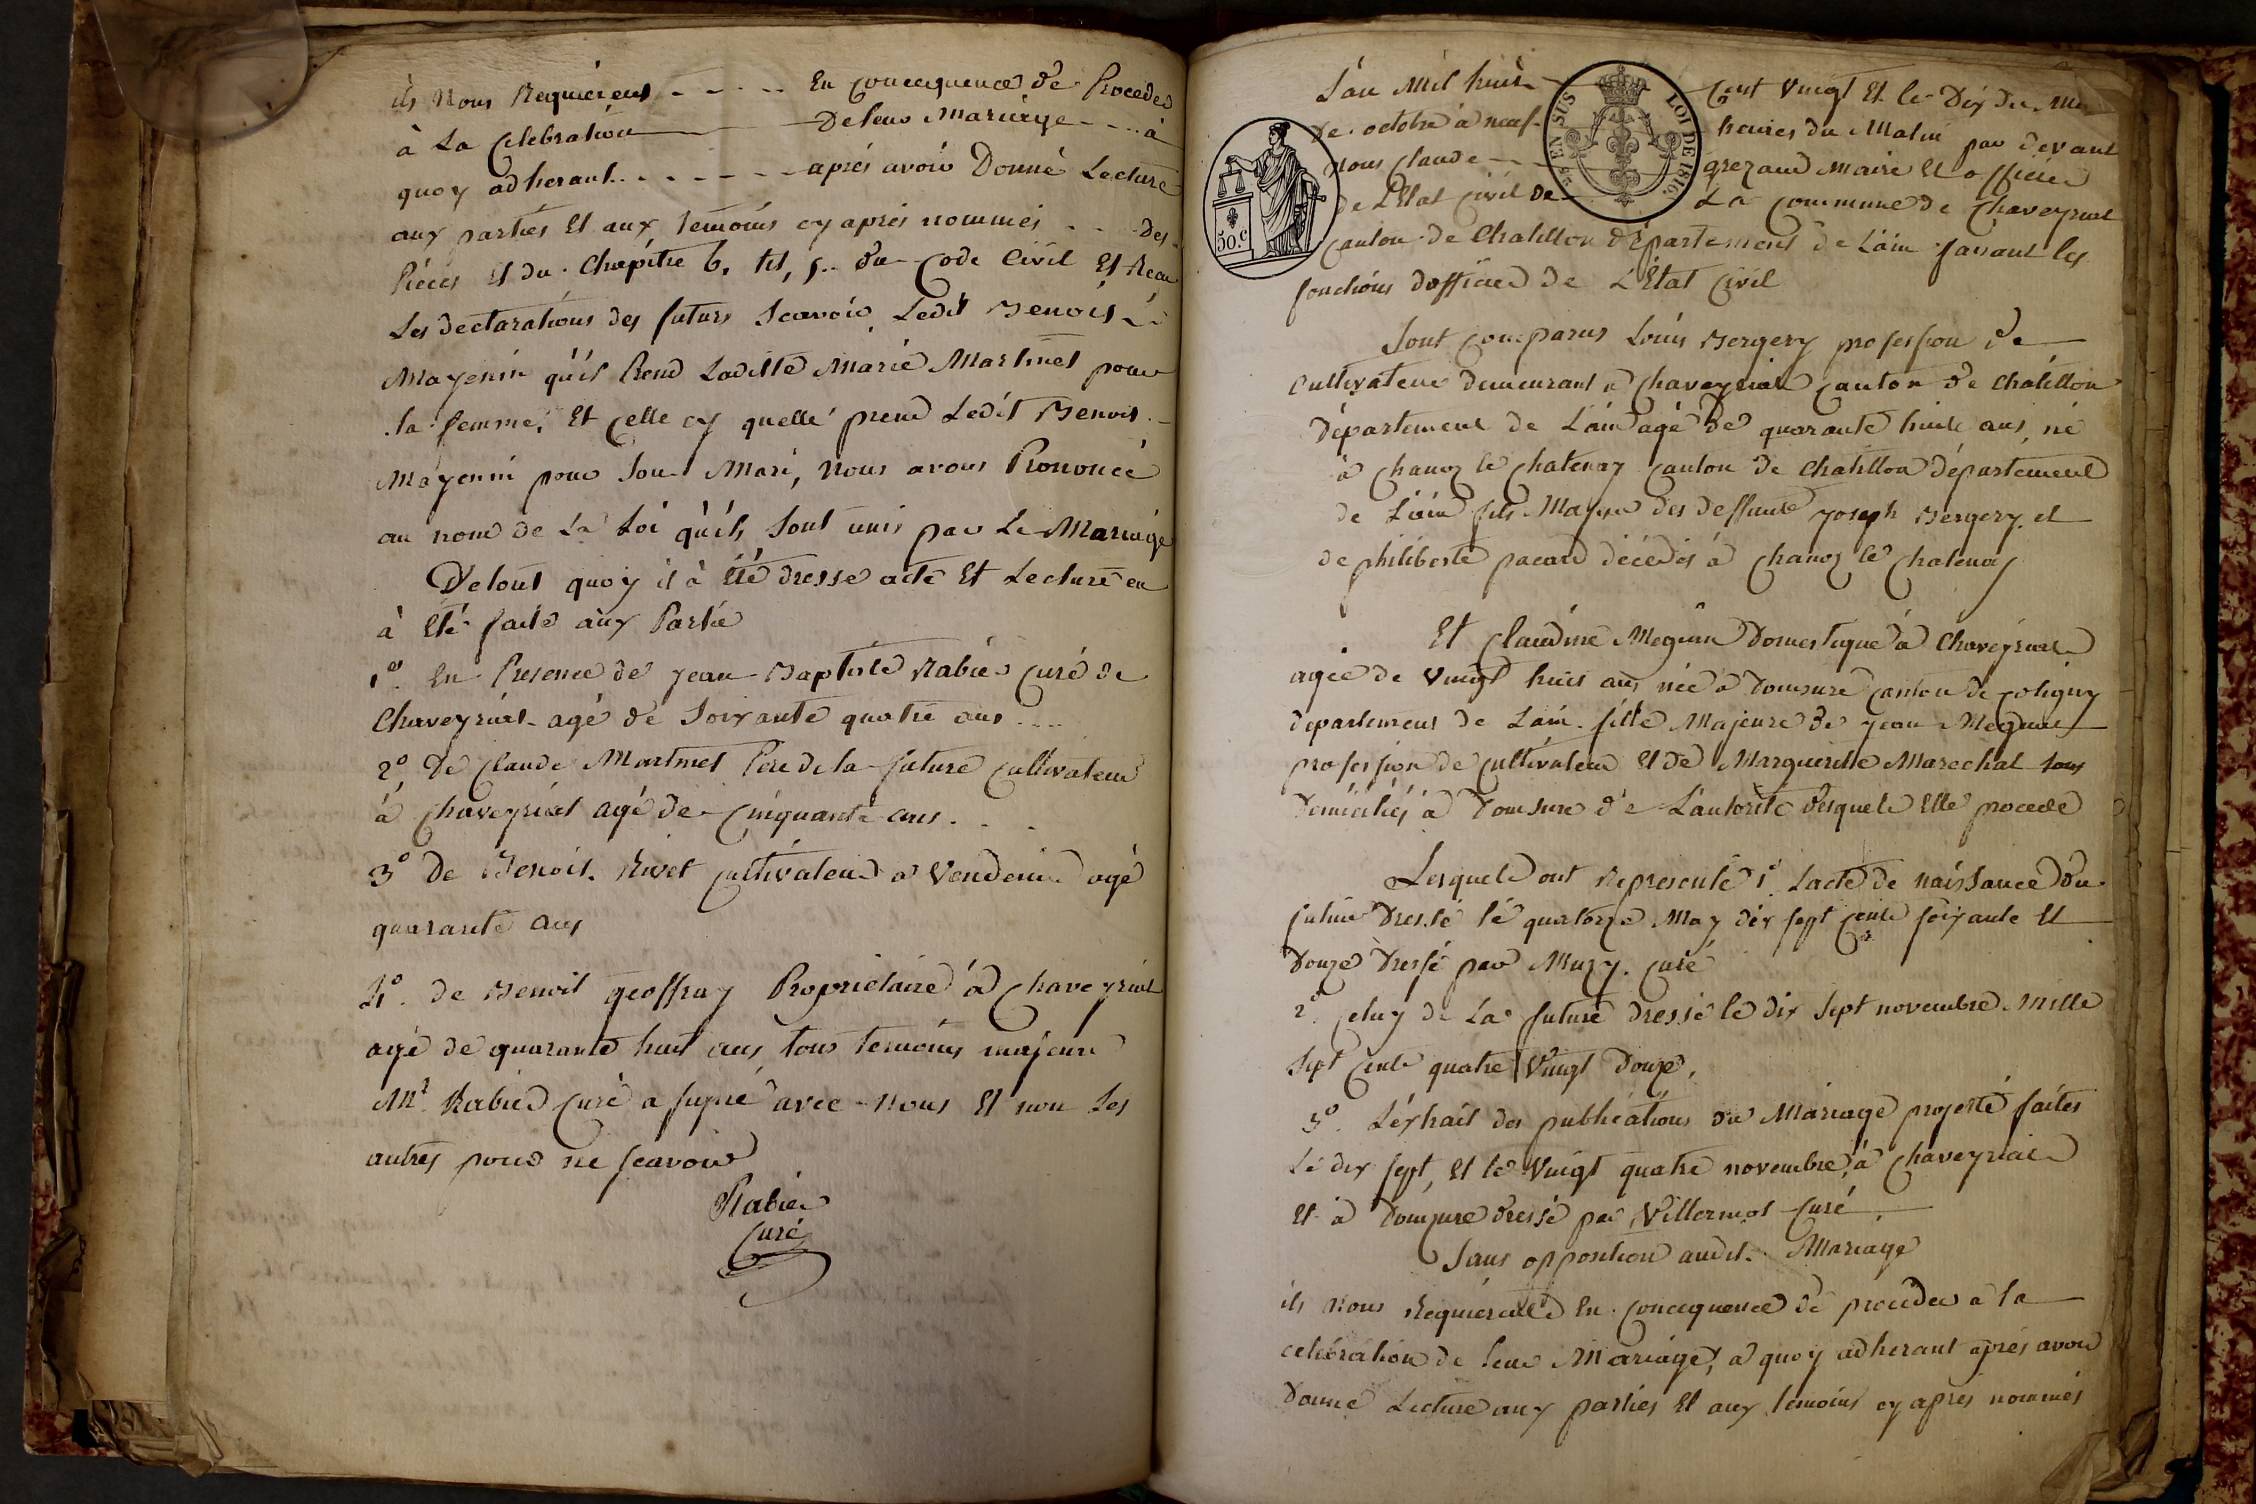 ils nous Requiérent - - - - - En concequence de Proceder
à La Celebration Deleur Mariage - - - à
quoy adherant - - - - - - après avoir Donné Lecture
aux parties Et aux temoins cy après nommés - - - des
Pièces Et du Chapitre 6. tit, 5. du Code Civil Et Recu
Les declarations des futurs Scavoir Ledit Benois
Mayenin qu'il Prend Laditte Marie Martinet pour
sa femme, Et Celle cy quelle prend Ledit Benois
Mayenin pour Son Mari, nous avons Prononcé
au nom de La Loi qu'ils Sont unis par Le Mariage
De tout quoy il à Eté dressé acte Et Lecture en
à Eté faite aux Partie
1° En Presence de jean Baptiste Rabier Curé de
Chaveyriat agé de Soixante quatre ans
2° De Claude Martinet Père de la future Cultivateur
à Chaveyriat agé de Cinquante ans
3° De Benoit Rivet Cultivateur a Vendeins agé
quarante ans
4° de Benoit geoffray Propriétaire à Chaveyriat
agé de quarante huit ans tous temoins majeurs
Mr Rabier Curé a signé avec nous Et non Les
autres pour ne scavoir
Rabier
Curé
L'an Mil huit Cent Vingt Et le Dix du Mois
De octobre à neuf heures du Matin par devant
Nous Claude grezaud Maire Et officier
De L'Etat Civil De La Commune de Chaveyriat
Canton de Chatillon Département de L'ain faisant les
fonctions D'officier de L'Etat Civil
EN SUS
LOI DE 1816.
50.c
Sont Comparus Louis Bergery profession de
Cultivateur demeurant à Chaveyriat Canton de Chatillon
Département de L'ain agé de quarante huit ans, né
à Chanoz le Chatenay Canton de Chatillon département
de L'ain fils Majeur des deffunts Joseph Bergery et
de philiberte pacard décédés à Chanoz le Chatenay
Et Claudine Meguin Domestique à Chaveyriat
agée de Vingt huit ans née à Domsure Canton de Coligny
departement de L'ain fille Majeure de jean Meguin
profession de Cultivateur Et de Marguerite Marechal tous
Domiciliés à Domsure de L'autorité desquels Elle procede
Lesquels ont Representé 1° Lacte de naissance du
futur Dressé le quatorze May dix sept Cent soixante Et
Douze Dressé par Muzy. Curé
2° Celuy de La future dressé le dix sept novembre Mille
Sept Cent quatre Vingt Douze,
3° L'extrait des publications du Mariage projetté faites
Le dix sept, Et le Vingt quatre novembre à Chaveyriat
Et à Domsure dressé par Villermot Curé
Sans opposition audit Mariage
ils nous Requiérent En concequence de proceder a la
celebration de leur Mariage, a quoy adherant après avoir
Donné Lecture aux parties Et aux temoins cy après nommés